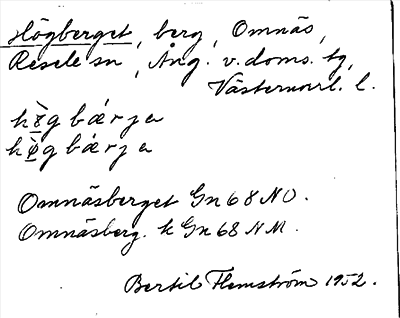 Högberget, berg, Omnäs,
Resele sn, Ång. v. doms. tg,
Västernorrl. l.
högbǽrja
hø̀gbǽrja
Omnäsberget Gn 68 NO.
Omnäsberg. k Gn 68 NM.
Bertil Flemström 1952.